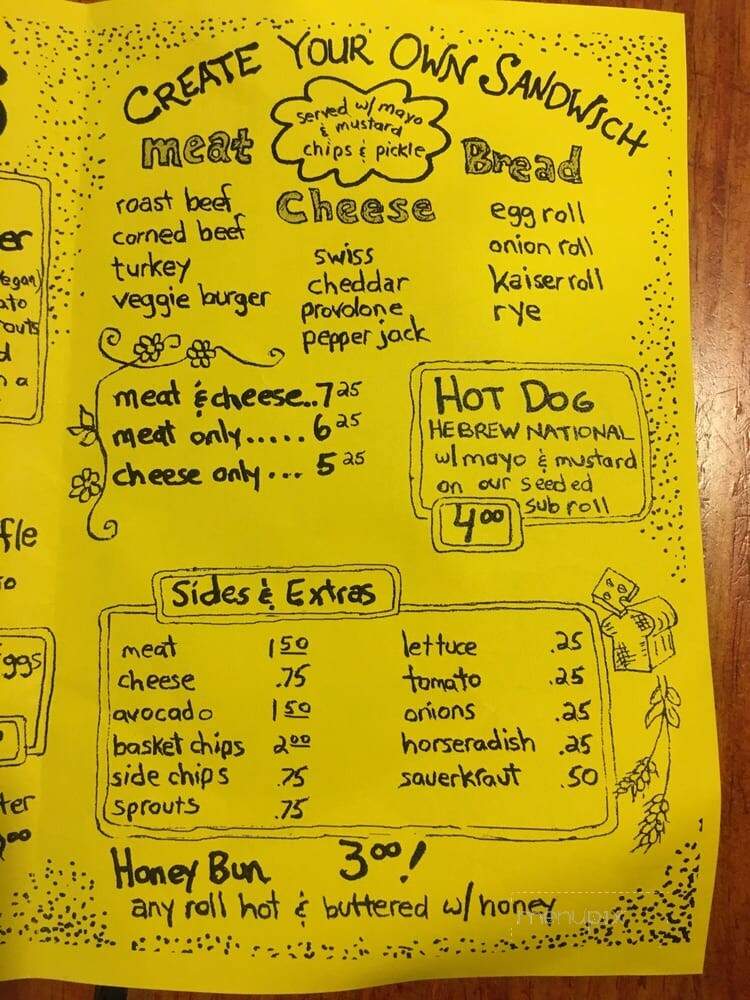 CREATE YOUR OWN SANDWICH
served w/ mayo
& mustard
chips & pickle
meat
roast beef
corned beef
turkey
veggie burger
Cheese
swiss
cheddar
provolone
pepper jack
Bread
egg roll
onion roll
Kaiser roll
rye
meat & cheese..7 25
meat only.....6 25
cheese only...5 25
HOT DOG
HEBREW NATIONAL
w/ mayo & mustard
on our seeded
sub roll
4 00
Sides & Extras
meat 1 50
cheese .75
avocado 1 50
basket chips 2 00
side chips .75
sprouts .75
lettuce .25
tomato .25
onions .25
horseradish .25
sauerkraut .50
Honey Bun 3 00!
any roll hot & buttered w/ honey
menupix